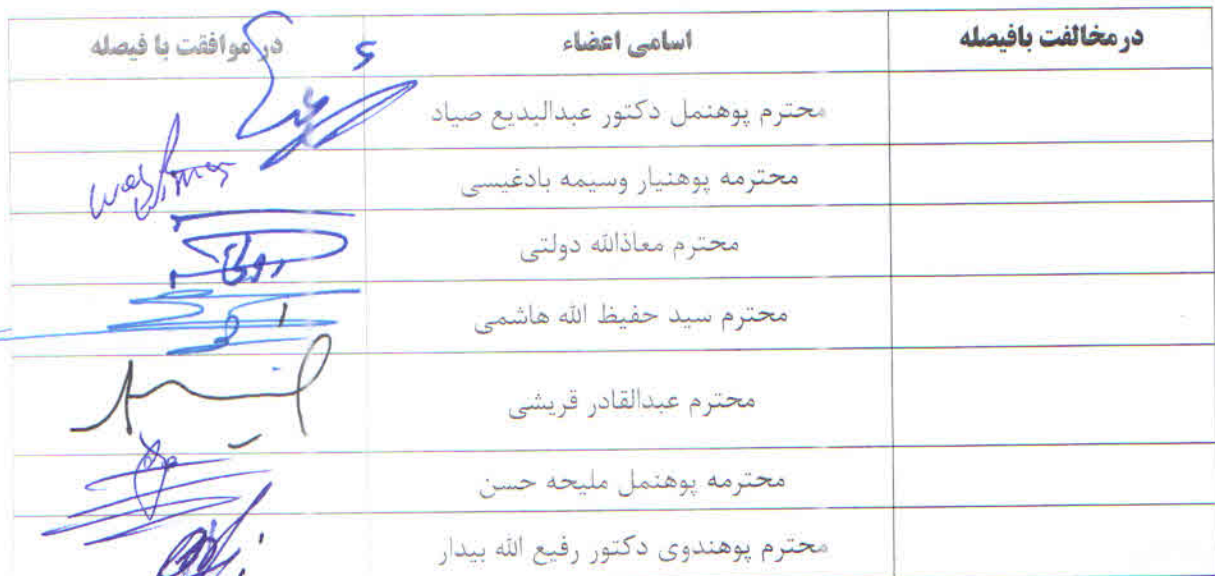 در مخالفت بافیصله اسامی اعضاء در موافقت با فیصله
محترم پوهنمل دکتور عبدالبدیع صیاد
محترمه پوهنیار وسیمه بادغیسی
محترم معاذالله دولتی
محترم سید حفیظ الله هاشمی
محترم عبدالقادر قریشی
محترمه پوهنمل ملیحه حسن
محترم پوهندوی دکتور رفیع الله بیدار